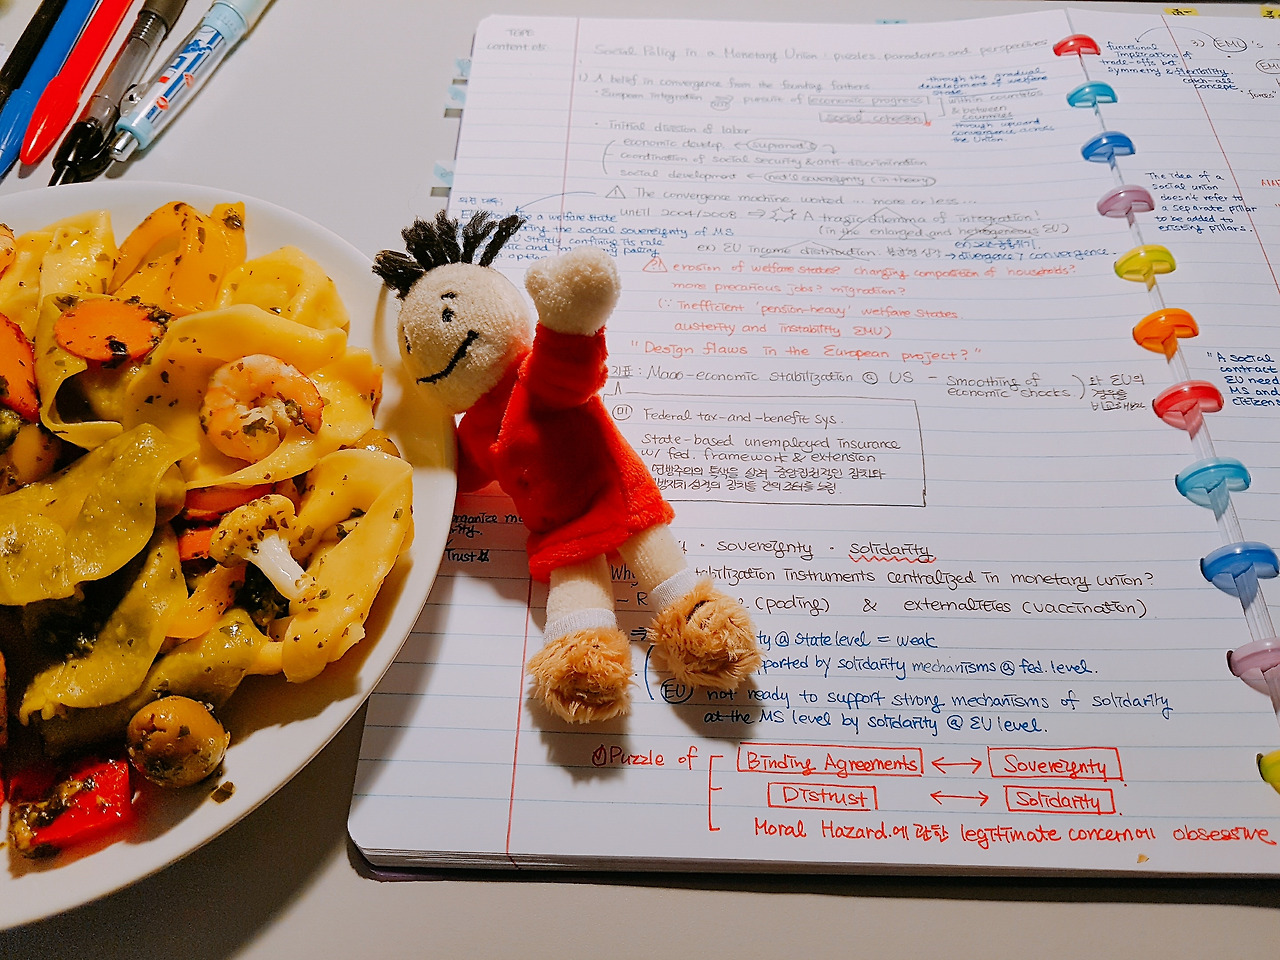 TOPIC
content etc
Social Policy in a Monetary Union : puzzles, paradoxes and perspectives
1) A belief in convergence from the founding fathers
through the gradual
development of welfare
state
• European Integration pursuit of economic progress
+
social cohesion
within countries
& between
countries
through upward
convergence across
the Union.
• Initial division of labor
economic develop. ← supranat'l
coordination of social security & anti-discrimination
social development ← nat'l sovereignty (in theory)
⚠ The convergence machine worked ... more or less ...
until 2004/2008 ⇒ ☆ A tragic dilemma of integration!
(in the enlarged and heterogeneous EU)
a welfare state
the social sovereignty of MS
strictly confining its role
ex) EU income distribution
→ divergence > convergence.
erosion of welfare states? changing composition of households?
more precarious jobs? migration?
(∵ Inefficient 'pension-heavy' welfare states,
austerity and instability EMU)
"Design flaws in the European project?"
: Macro-economic stabilization @ US - Smoothing of
economic shocks.
와 EU의
경우를
Federal tax-and-benefit sys.
State-based unemployed insurance
w/ fed. framework & extension
organize
Trust
• sovereignty • solidarity
Why
instruments centralized in monetary union?
(pooling) & externalities (vaccination)
@ state level = weak
by solidarity mechanisms @ fed. level.
EU not ready to support strong mechanisms of solidarity
at the MS level by solidarity @ EU level.
Puzzle of
Binding Agreements ↔ Sovereignty
Distrust ↔ Solidarity
Moral Hazard.에 관한 legitimate concern에 obsessive
functional
implications of
trade-offs bet.
symmetry & flexibility.
catch-all
concept.
3) EMU's
"forces"
The idea of a
social union
doesn't refer to
a separate pillar
to be added to
existing pillars.
"A social
contract
EU need
MS and
citizens